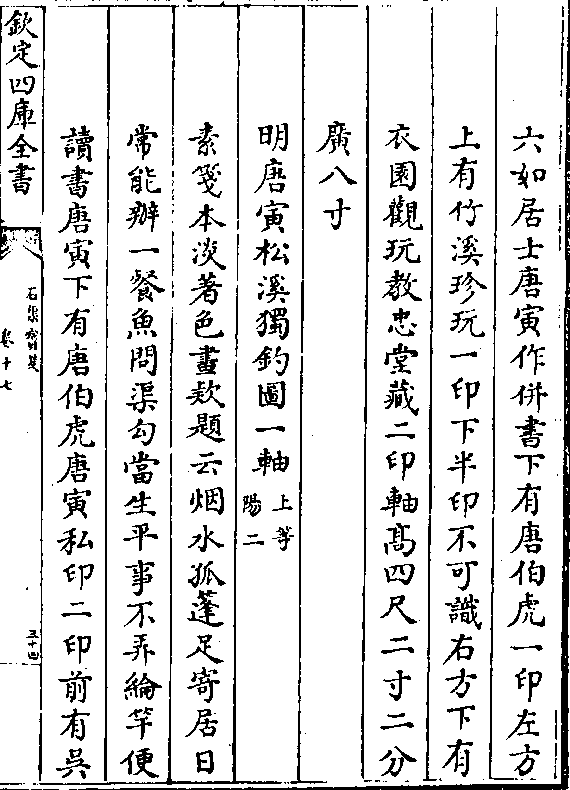 六如居士唐寅作併書下有唐伯虎一印左方
上有竹溪珍玩一印下半印不可識右方下有
衣園觀玩教忠堂藏二印軸髙四尺二寸二分
廣八寸
明唐寅松溪獨釣圖一軸上等
陽二
素箋本淡著色畫欵題云烟水孤蓬足寄居日
常能辦一餐魚問渠勾當生平事不弄綸竿便
讀書唐寅下有唐伯虎唐寅私印二印前有吳
欽定四庫全書
石渠寶笈
卷十七
五十四